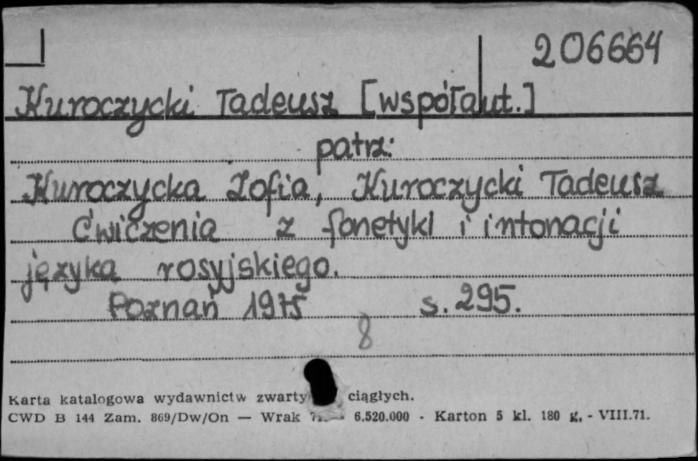 206664
Kuroczycki Tadeusz [współaut.]
patrz:
Kuroczycka Zofia, Kuroczycki Tadeusz
Ćwiczenia z fonetyki i intonacji
języka rosyjskiego.
Poznań 1975 s. 295.
8
Karta katalogowa wydawnictw zwarty ciągłych.
CWD B 144 Zam. 869/Dw/On — Wrak 6.520.000 - Karton 5 kl. 180 g. - VIII.71.